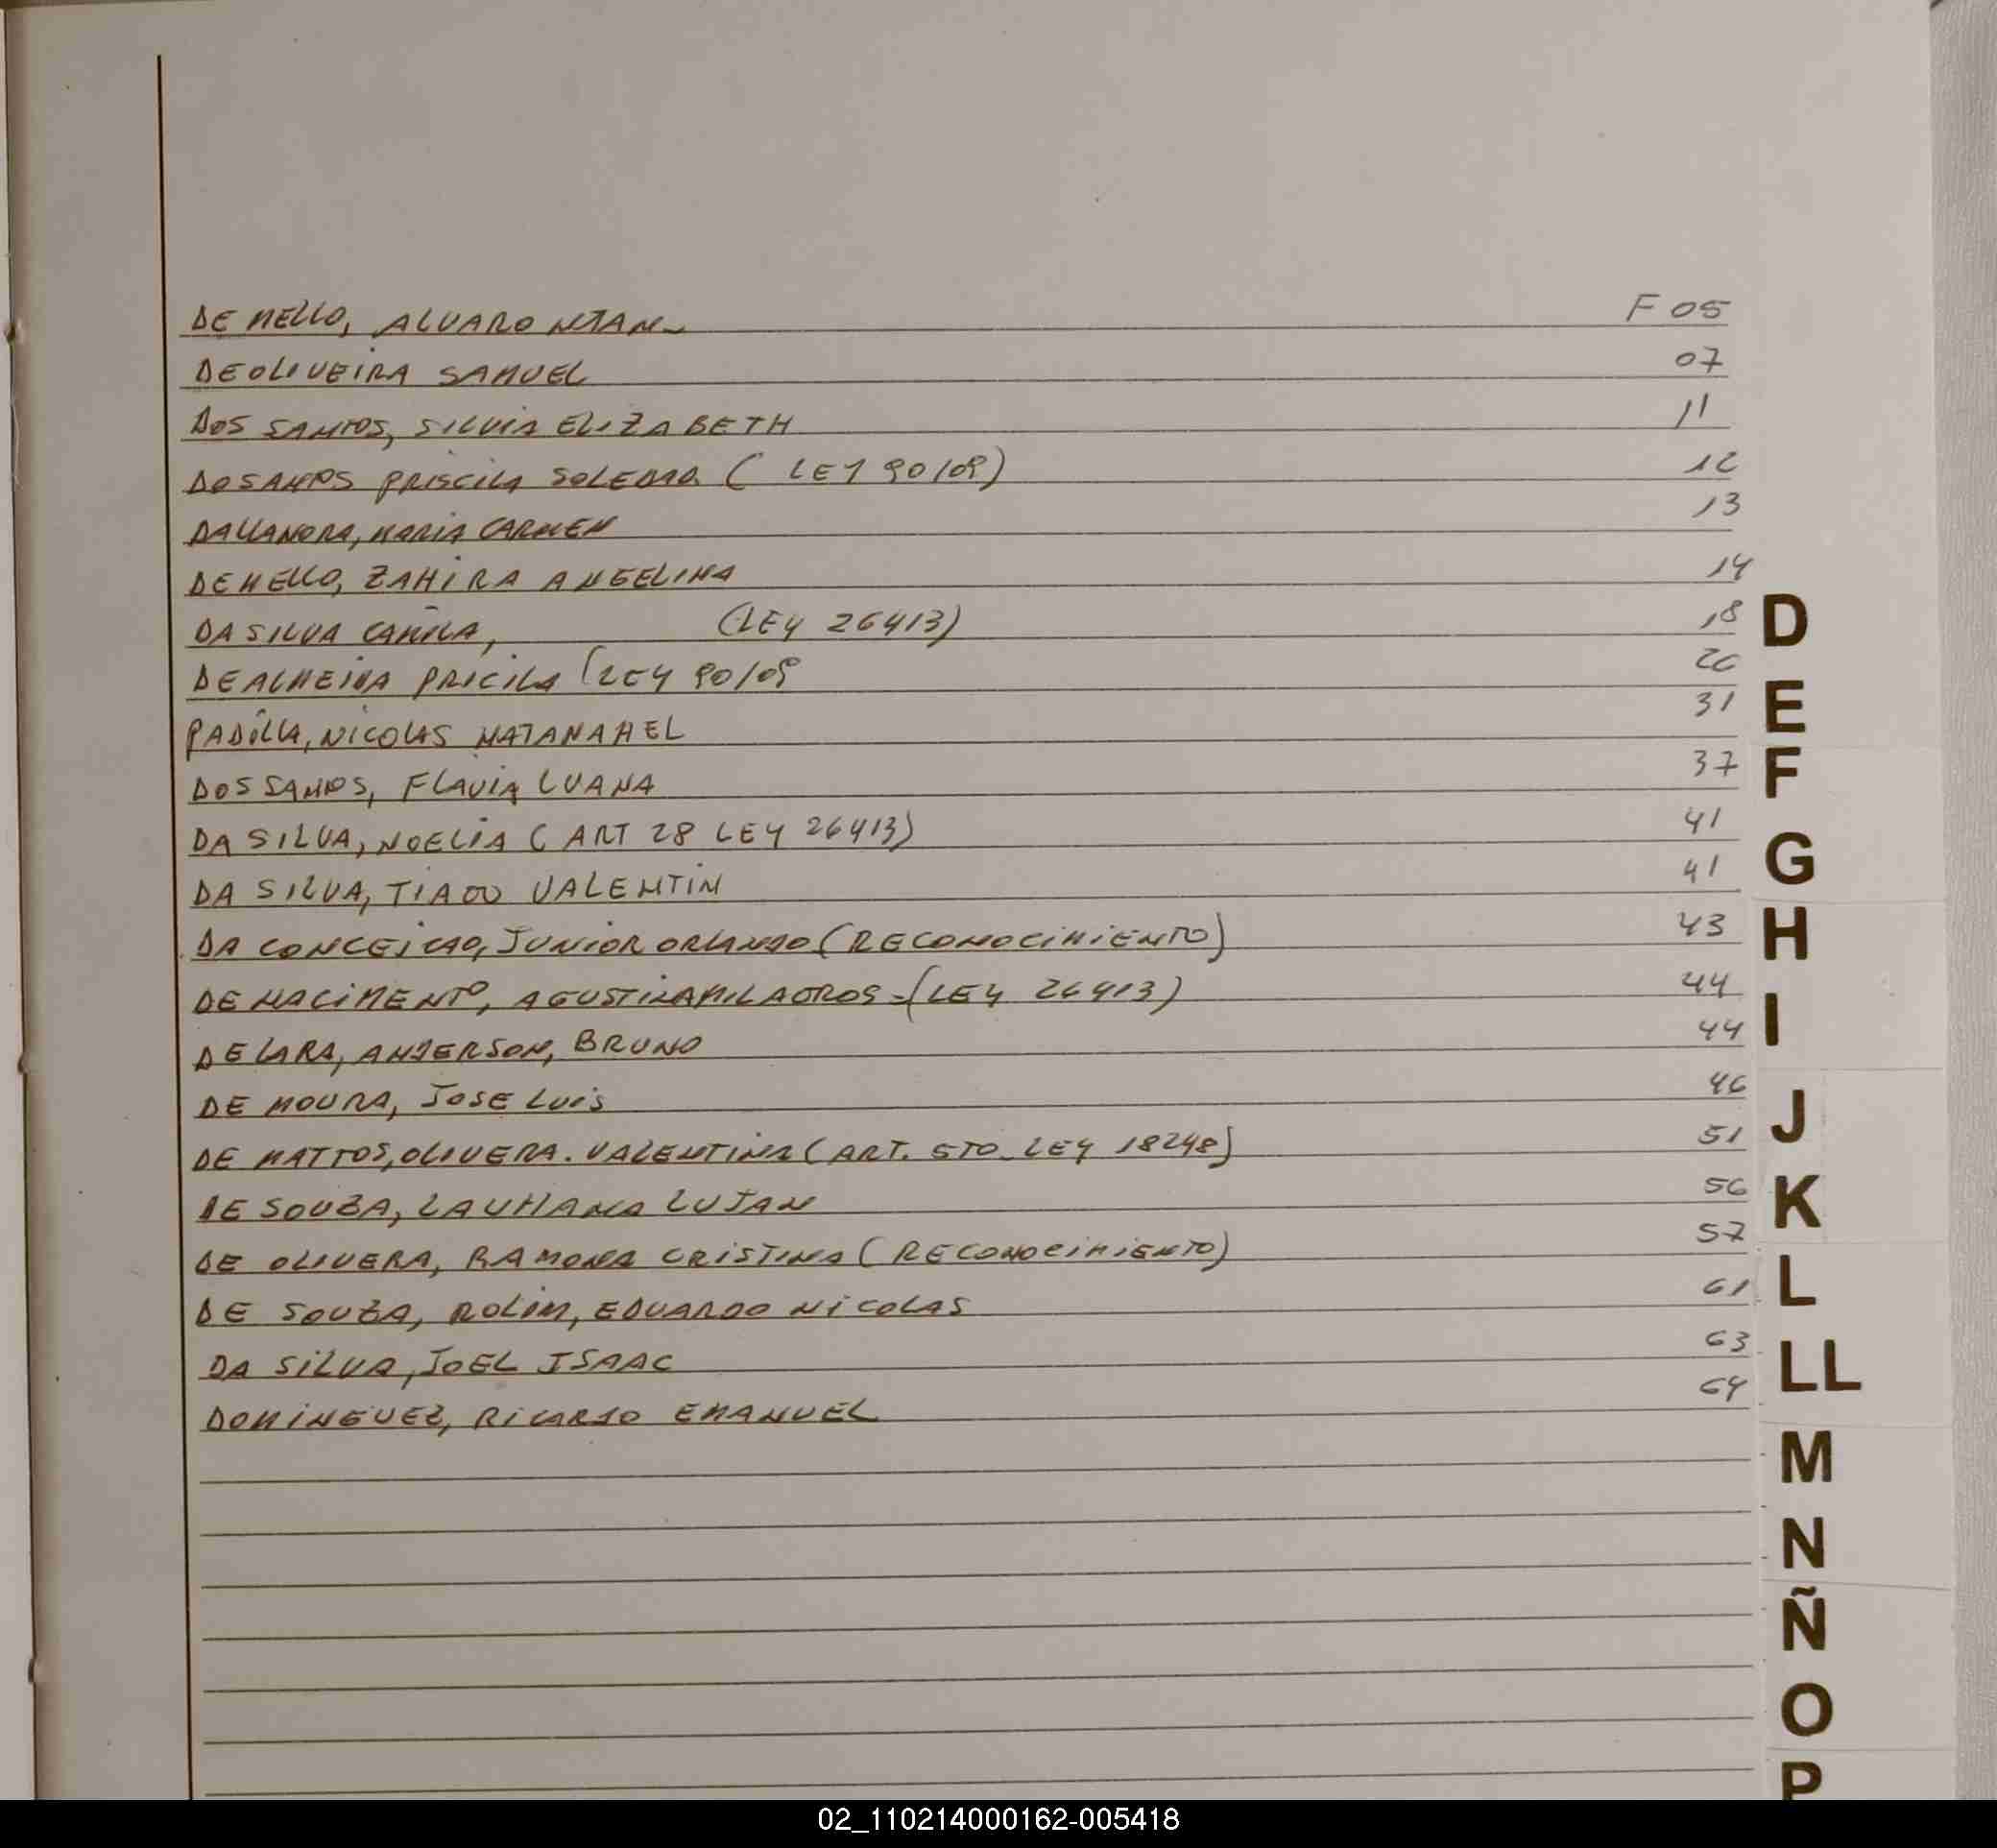 DE MELLO, ALVARO F 05
DEOLIVEIRA SAMUEL 07
DOS SANTOS, SILVIA ELIZABETH 11
DOSANTOS PRISCILA SOLEDAD (LEY 90/09) 12
DALLANORA, MARIA CARMEN 13
DEMELLO, ZAHIRA ANGELINA 14
DA SILVA CAMILA, (LEY 26413) 18
DEALMEIDA PRICILA (LEY 90/09
PADILLA, NICOLAS NATANAHEL 31
DOS SANTOS, FLAVIA LUANA 37
DA SILVA, NOELIA (ART 28 LEY 26413) 41
DA SILVA, VALENTIN 41
DA CONCEICAO, JUNIOR ORLANDO (RECONOCIMIENTO) 43
DE NACIMENTO, AGUSTINA MILAGROS - (LEY 26413) 44
DE LARA, ANDERSON, BRUNO 44
DE MOURA, JOSE LUIS 46
DE MATTOS, OLIVERA. VALENTINA (ART. 5TO. LEY 18248) 51
DE SOUZA, LAUHANA LUJAN 56
DE OLIVERA, RAMONA CRISTINA (RECONOCIMIENTO) 57
DE SOUZA, ROLIM, EDUARDO NICOLAS 61
DA SILVA, JOEL ISAAC 63
DOMINGUEZ, RICARDO EMANUEL 64
D
E
F
G
H
I
J
K
L
LL
M
N
Ñ
O
P
02_110214000162-005418